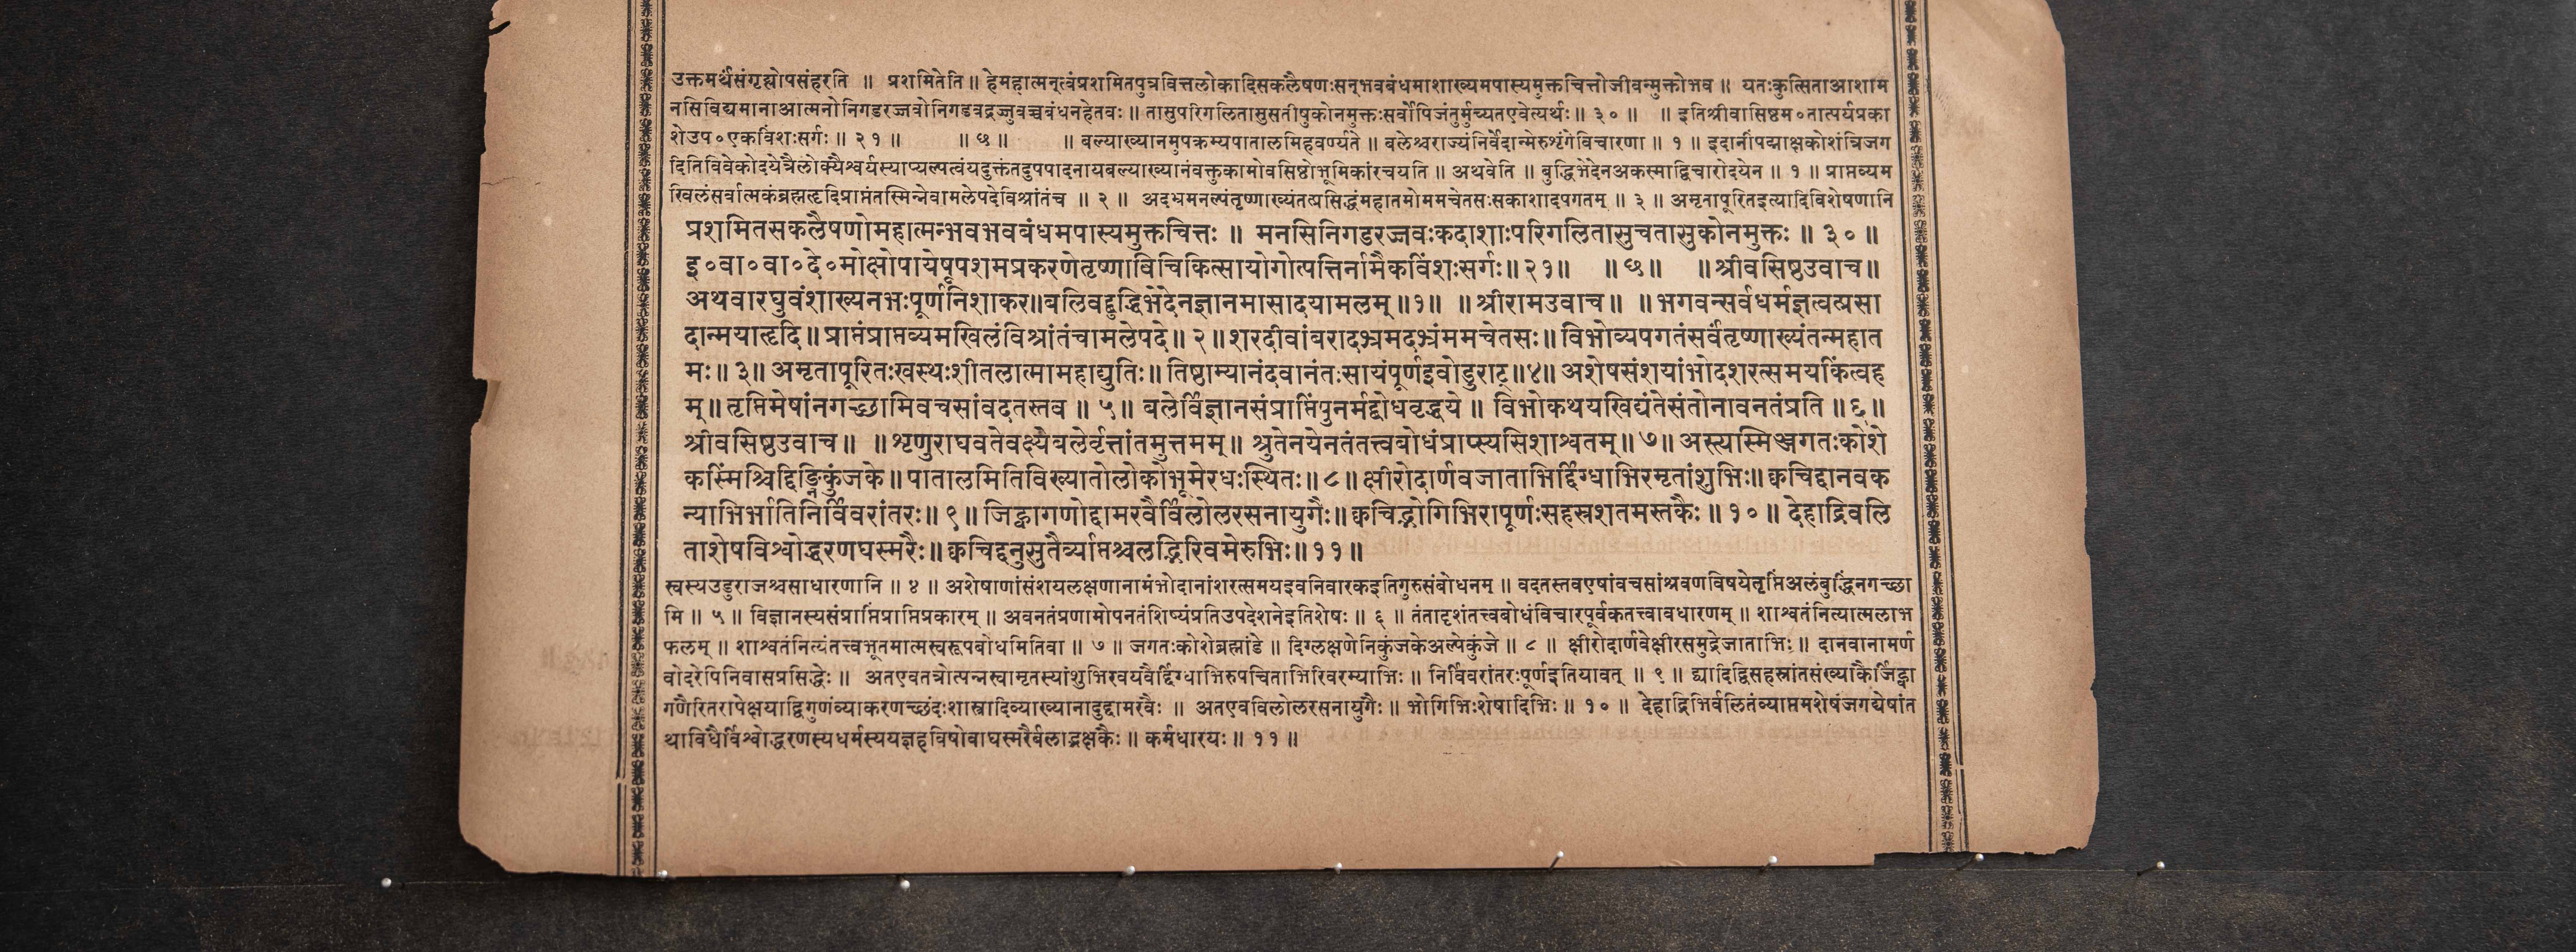 उक्तमर्थंसंगृह्योपसंहरति ॥ प्रशमितेति ॥ हेमहात्मन्त्वंप्रशमितपुत्रवित्तलोकादिसकलैषणःसन्भवबंधमाशाख्यमपास्यमुक्तचित्तोजीवन्मुक्तोभव ॥ यतःकुत्सिताआशाम
नसिविद्यमानाआत्मनोनिगडरज्जवोनिगडवद्रज्जुवच्चबंधनहेतवः ॥ तासुपरिगलितासुसतीषुकोनमुक्तःसर्वोपिजंतुर्मुच्यतएवेत्यर्थः ॥ ३० ॥ ॥ इतिश्रीवासिष्ठम०तात्पर्यप्रका
शेउप०एकविंशःसर्गः ॥ २१ ॥ ॥ ७५ ॥ ॥ बल्याख्यानमुपक्रम्यपातालमिहवर्ण्यते ॥ बलेश्चराज्यंनिर्वेदान्मेरुशृंगेविचारणा ॥ १ ॥ इदानींपद्माक्षकोशंत्रिजग
दितिविवेकोदयेत्रैलोक्यैश्वर्यस्याप्यल्पत्वंयदुक्तंतदुपपादनायबल्याख्यानंवक्तुकामोवसिष्ठोभूमिकांरचयति ॥ अथवेति ॥ बुद्धिभेदेनअकस्माद्विचारोदयेन ॥ १ ॥ प्राप्तव्यम
खिलंसर्वात्मकंब्रह्महृदिप्राप्तंतस्मिन्नेवामलेपदेविश्रांतंच ॥ २ ॥ अदभ्रमनल्पंतृष्णाख्यंतत्प्रसिद्धंमहातमोममचेतसःसकाशादपगतम् ॥ ३ ॥ अमृतापूरितइत्यादिविशेषणानि
प्रशमितसकलैषणोमहात्मन्भवभवबंधमपास्यमुक्तचित्तः ॥ मनसिनिगडरज्जवःकदाशाःपरिगलितासुचतासुकोनमुक्तः ॥ ३० ॥
इ०वा०वा०दे०मोक्षोपायेषूपशमप्रकरणेतृष्णाविचिकित्सायोगोत्पत्तिर्नामैकविंशःसर्गः॥२१॥ ॥७५॥ ॥श्रीवसिष्ठउवाच॥
अथवारघुवंशाख्यनभःपूर्णनिशाकर॥बलिवद्बुद्धिभेदेनज्ञानमासादयामलम्॥१॥ ॥श्रीरामउवाच॥ ॥भगवन्सर्वधर्मज्ञत्वत्प्रसा
दान्मयाहृदि॥प्राप्तंप्राप्तव्यमखिलंविश्रांतंचामलेपदे॥२॥शरदीवांबरादभ्रमदभ्रंममचेतसः॥विभोव्यपगतंसर्वंतृष्णाख्यंतन्महात
मः॥३॥अमृतापूरितःखस्थःशीतलात्मामहाद्युतिः॥तिष्ठाम्यानंदवानंतःसायंपूर्णइवोडुराट्॥४॥अशेषसंशयांभोदशरत्समयकिंत्वह
म्॥तृप्तिमेषांनगच्छामिवचसांवदतस्तव॥५॥बलेर्विज्ञानसंप्राप्तिंपुनर्मद्बोधवृद्धये॥विभोकथयखिद्यंतेसंतोनावनतंप्रति॥६॥
श्रीवसिष्ठउवाच॥ ॥शृणुराघवतेवक्ष्येबलेर्वृत्तांतमुत्तमम्॥श्रुतेनयेनतंतत्त्वबोधंप्राप्स्यसिशाश्वतम्॥७॥अस्त्यस्मिञ्जगतःकोशे
कस्मिंश्चिद्दिङ्निकुंजके॥पातालमितिविख्यातोलोकोभूमेरधःस्थितः॥८॥क्षीरोदार्णवजाताभिर्दिग्धाभिरमृतांशुभिः॥क्वचिद्दानवक
न्याभिर्भातिनिर्विवरांतरः॥९॥जिह्वागणोद्दामरवैर्विलोलरसनायुगैः॥क्वचिद्भोगिभिरापूर्णःसहस्रशतमस्तकैः॥१०॥देहाद्रिवलि
ताशेषविश्वोद्धरणघस्मरैः॥क्वचिद्दनुसुतैर्व्याप्तश्चलद्भिरिवमेरुभिः॥११॥
स्वस्यउडुराजश्चसाधारणानि ॥ ४ ॥ अशेषाणांसंशयलक्षणानामंभोदानांशरत्समयइवनिवारकइतिगुरुसंबोधनम् ॥ वदतस्तवएषांवचसांश्रवणविषयेतृप्तिंअलंबुद्धिंनगच्छा
मि ॥ ५ ॥ विज्ञानस्यसंप्राप्तिंप्राप्तिप्रकारम् ॥ अवनतंप्रणामोपनतंशिष्यंप्रतिउपदेशनेइतिशेषः ॥ ६ ॥ तंतादृशंतत्त्वबोधंविचारपूर्वकतत्त्वावधारणम् ॥ शाश्वतंनित्यात्मलाभ
फलम् ॥ शाश्वतंनित्यंतत्त्वभूतमात्मस्वरूपबोधमितिवा ॥ ७ ॥ जगतःकोशेब्रह्मांडे ॥ दिग्लक्षणेनिकुंजकेअल्पेकुंजे ॥ ८ ॥ क्षीरोदार्णवेक्षीरसमुद्रेजाताभिः ॥ दानवानामर्ण
वोदरेपिनिवासप्रसिद्धेः ॥ अतएवतत्रोत्पन्नस्वामृतस्यांशुभिरवयवैर्दिग्धाभिरुपचिताभिरिवरम्याभिः ॥ निर्विवरांतरःपूर्णइतियावत् ॥ ९ ॥ द्व्यादिद्विसहस्रांतसंख्याकैर्जिह्वा
गणैरितरापेक्षयाद्विगुणंव्याकरणच्छंदःशास्त्रादिव्याख्यानादुद्दामरवैः ॥ अतएवविलोलरसनायुगैः ॥ भोगिभिःशेषादिभिः ॥ १० ॥ देहाद्रिभिर्वलितंव्याप्तमशेषंजगद्येषांत
थाविधैर्विश्वोद्धरणस्यधर्मस्ययज्ञहविषोवाघस्मरैर्बलाद्भक्षकैः ॥ कर्मधारयः ॥ ११ ॥